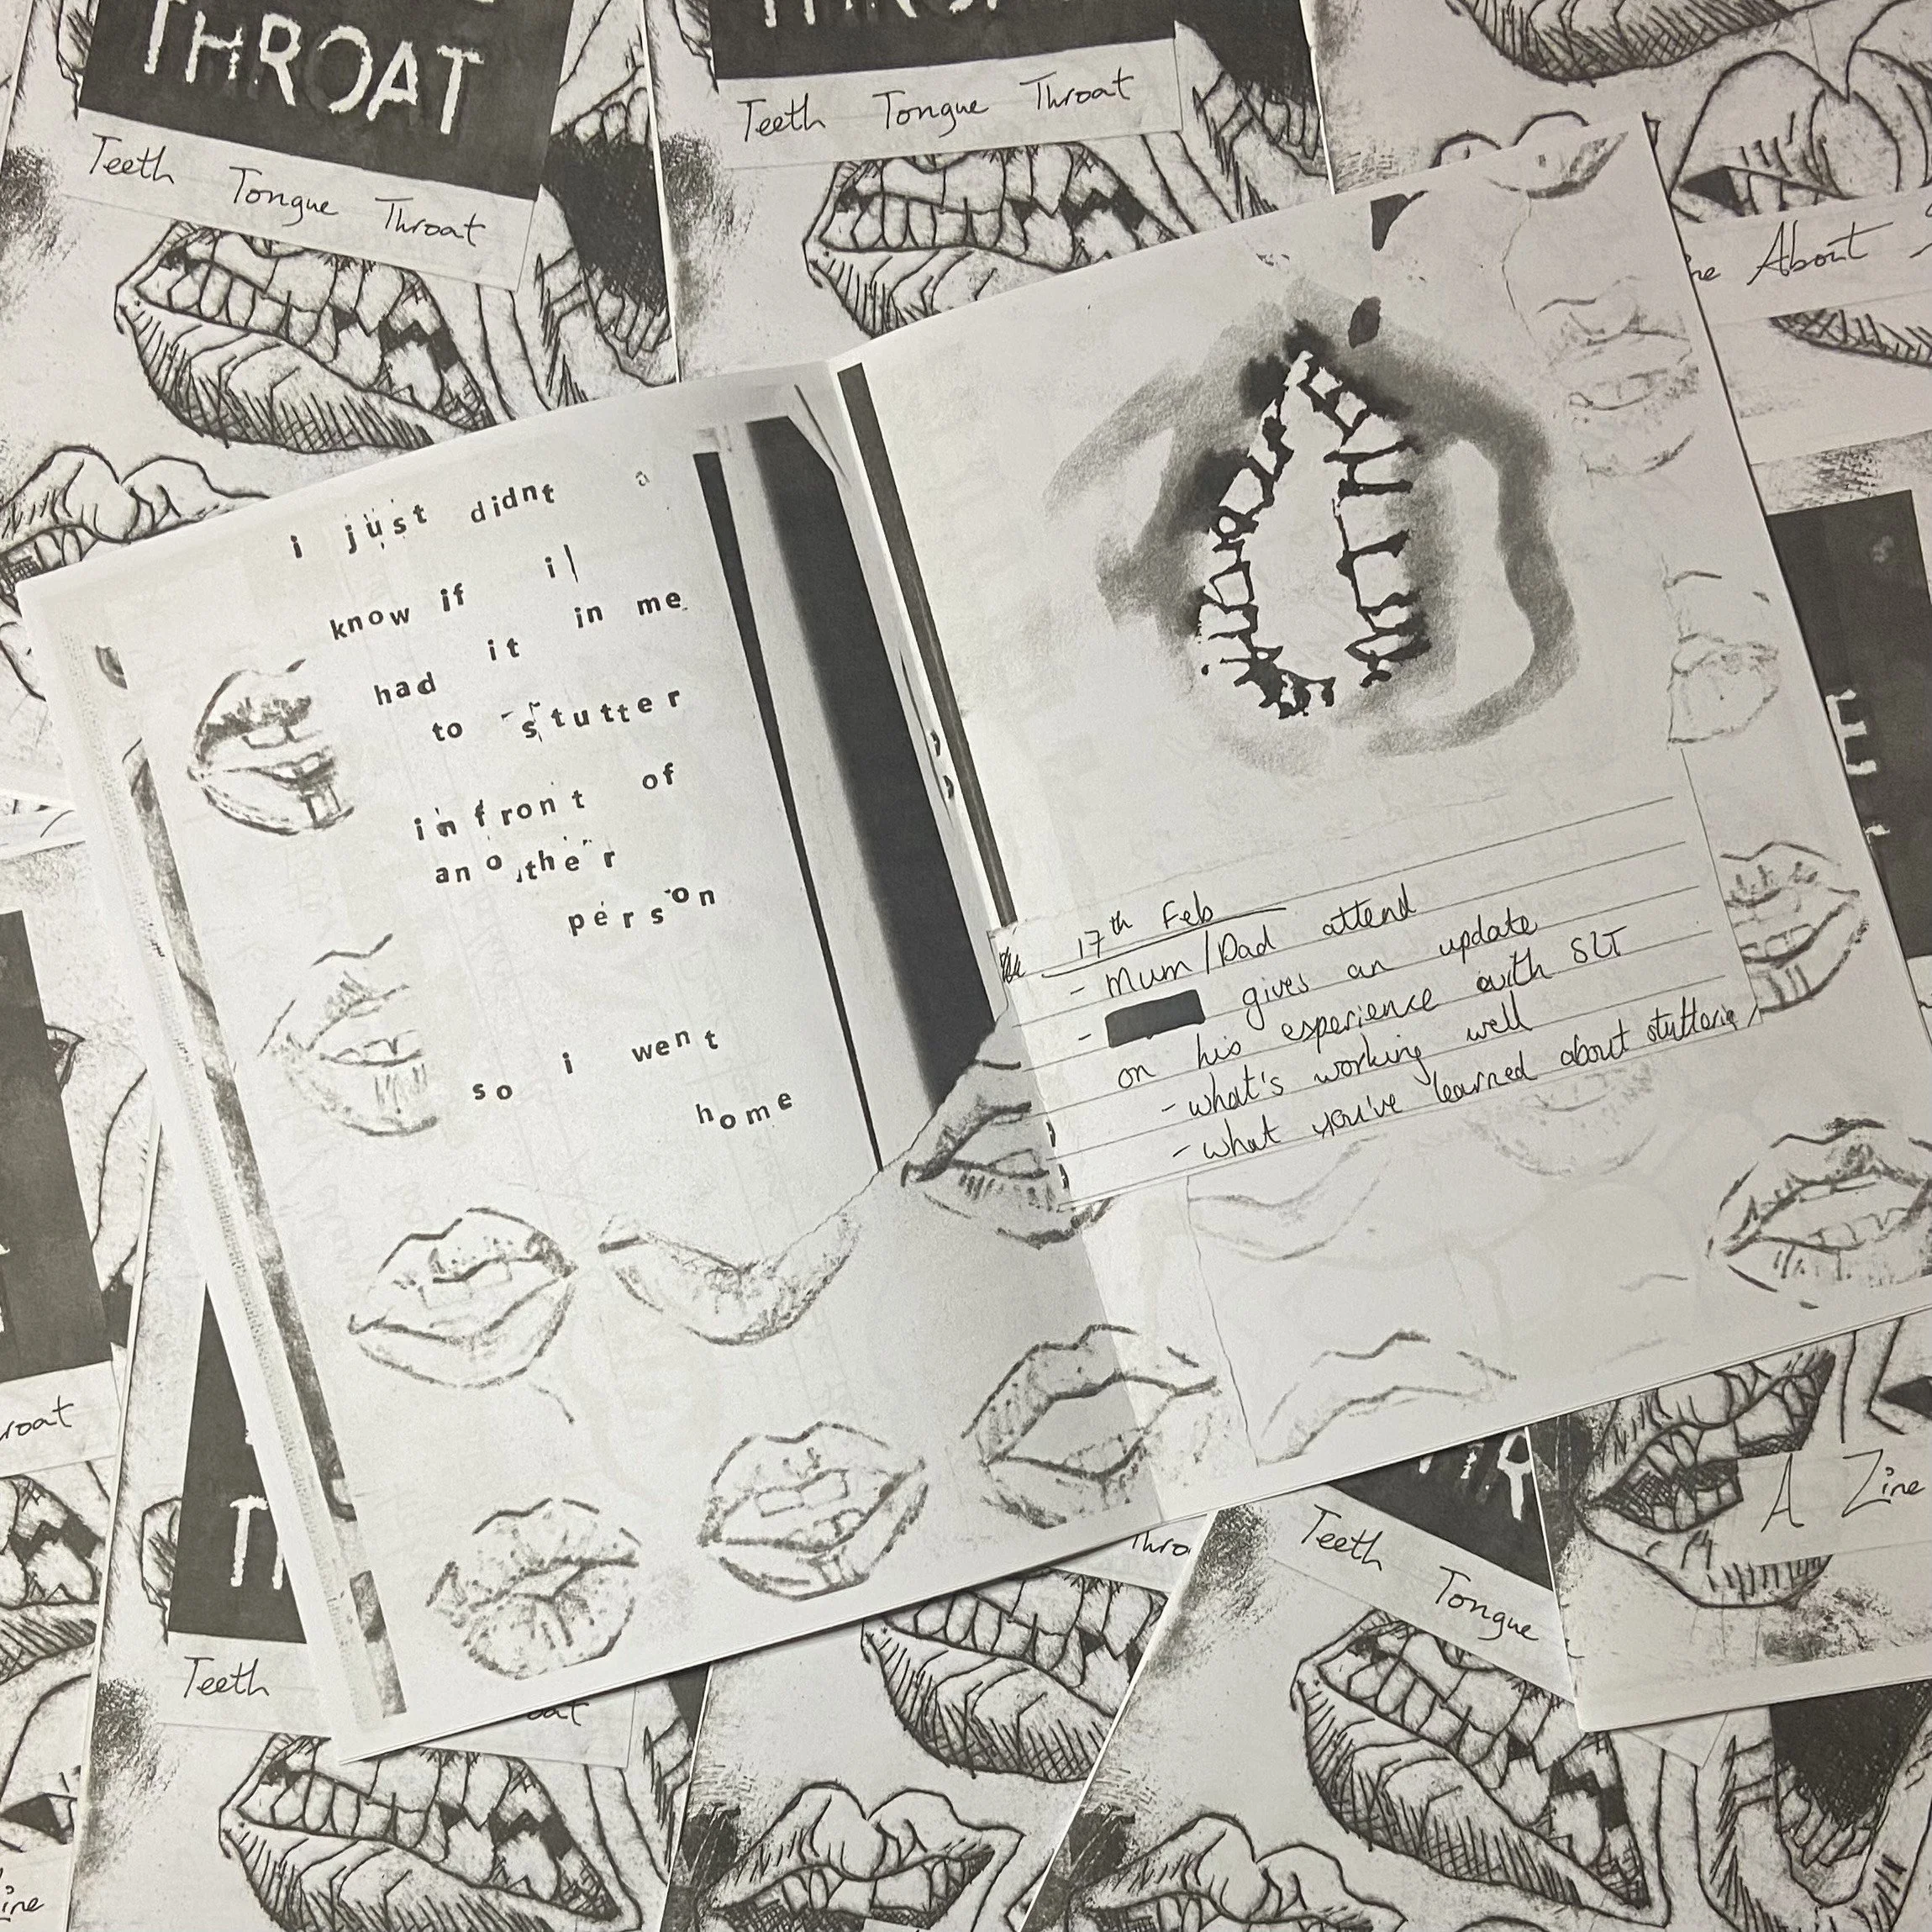 THROAT
Teeth Tongue Throat
Teeth Tongue Throat
About
i just didnt
know if i
had it in me
to stutter
infront of
another
person
so i went
home
17th Feb
- Mum/Dad attend
- gives an update
on his experience with SLT
- what's working well
- what you've learned about stuttering
Teeth
Teeth Tongue
A Zine